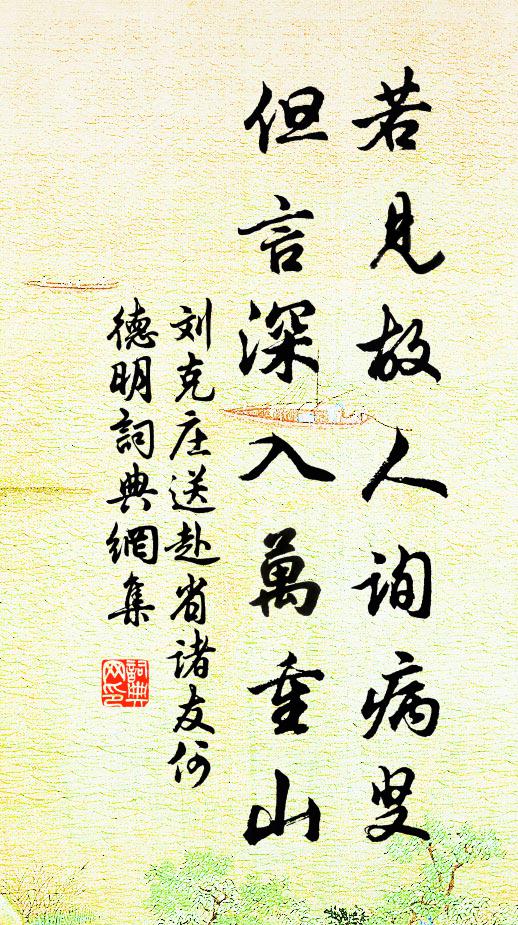 若見故人詢病叟
但言深入萬重山
刘克庄送赴省诸友何
德明詞典網集
詞典
网印